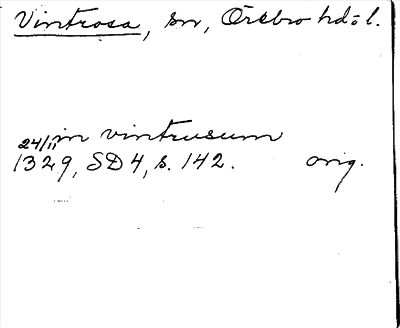 Vintrosa, sn, Örebro hd o l.
in vintrusum
24/11 1329, SD 4, s. 142. orig.